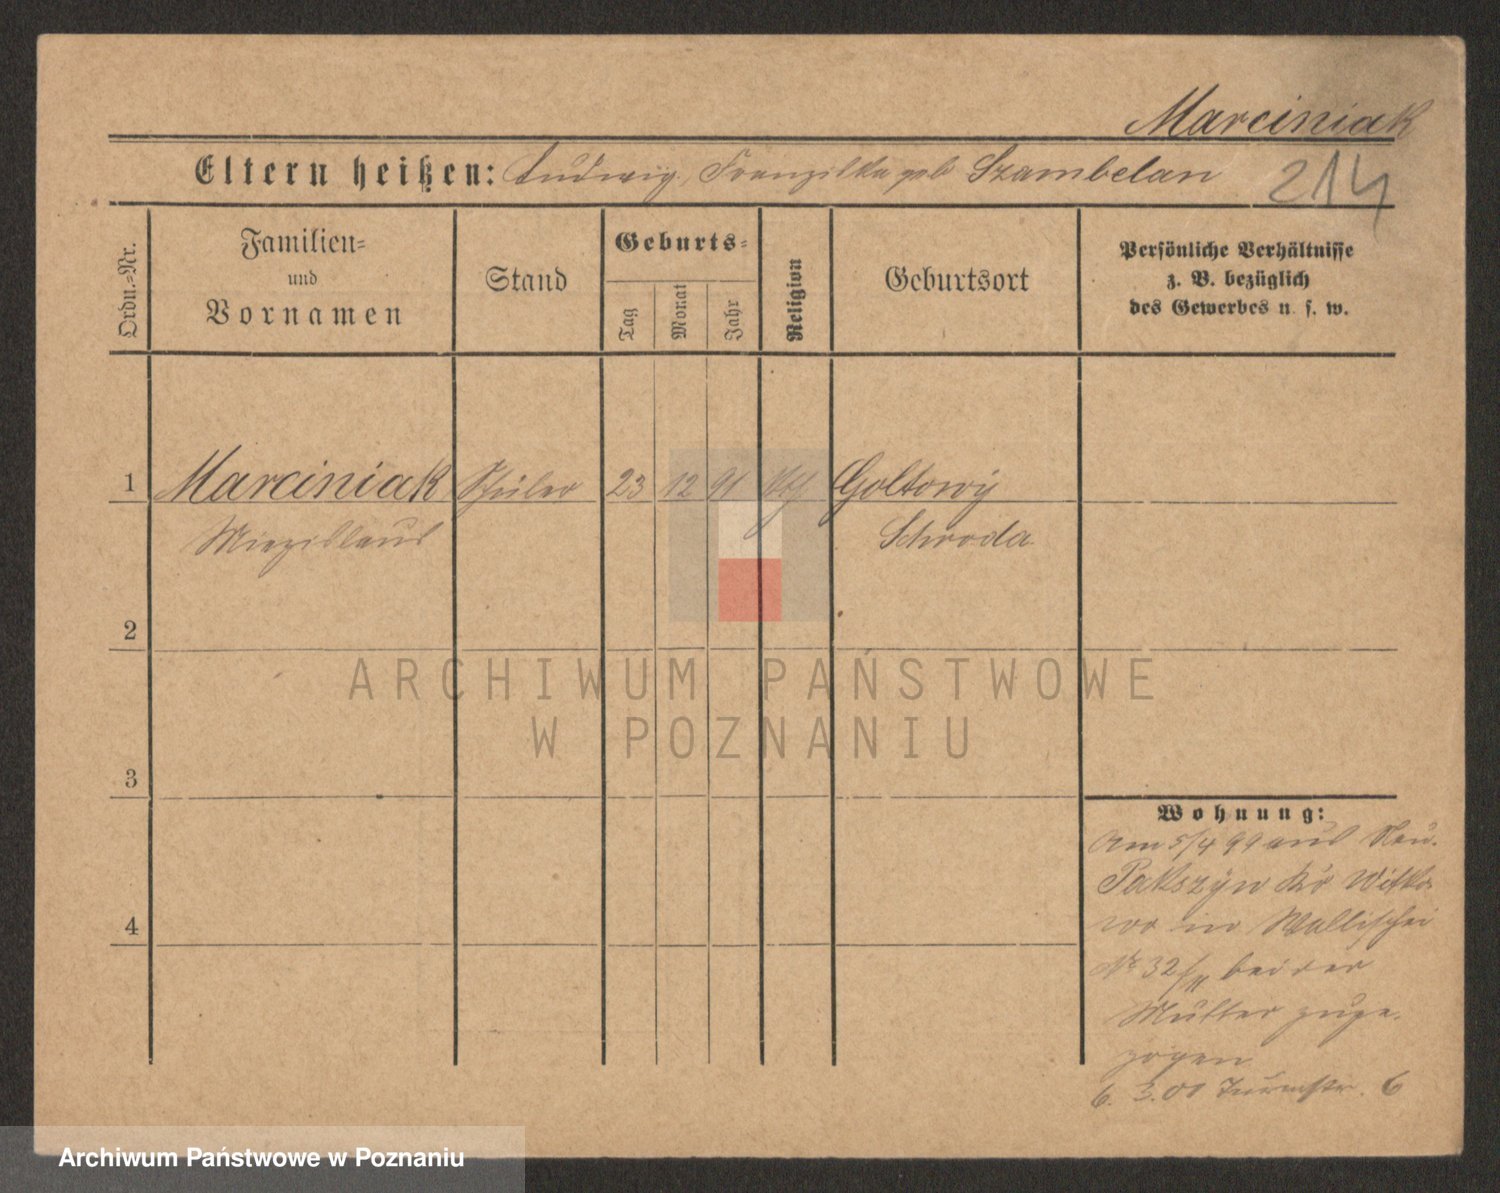 Marciniak
Eltern heißen: Ludwig, Franziska geb Szambelan
214
Ordn.=Nr.
Familien=
und
Vornamen
Stand
Geburts=
Tag
Monat
Jahr
Religion
Geburtsort
Persönliche Verhältnisse
z. B. bezüglich
des Gewerbes u. s. w.
1 Marciniak Schüler 23 12 91 kth Goltowy
Miezislaus Schroda
2
3
4
Wohnung:
Am 5/4 99 aus Neu-
Pakszyn Kr Witko-
wo in Wallischei
No 32/II bei der
Mutter zuge-
zogen
6. 3. 00 Turmstr. 6
ARCHIWUM PAŃSTWOWE
W POZNANIU
Archiwum Państwowe w Poznaniu